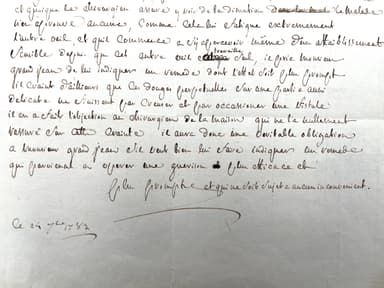 et quoique le chirurgien assure y voir de la diminution le malade
n'en eprouve aucune, comme cela lui fatigue extremement
l'autre oeil et qu'il commence a s'y apercevoir même d'un affaiblissement
sensible depuis que cet autre oeil travaille seul, il prie monsieur
grand jean de lui indiquer un remede dont l'effet soit plus prompt
il craint d'ailleurs que ces perpetuelles sur une partie aussi
delicate ne finissent par creuser et par occasionner une fistule
il en a fait l'objection au chirurgien de la maison qui ne l'a nullement
rassuré sur cette crainte. il aura donc une veritable obligation
a monsieur grand jean s'il veut bien lui faire indiquer un remede
qui parvienne a operer une guerison plus efficace et
plus prompte et qui ne soit sujet a aucun inconvenient.
ce 24 7bre 1783